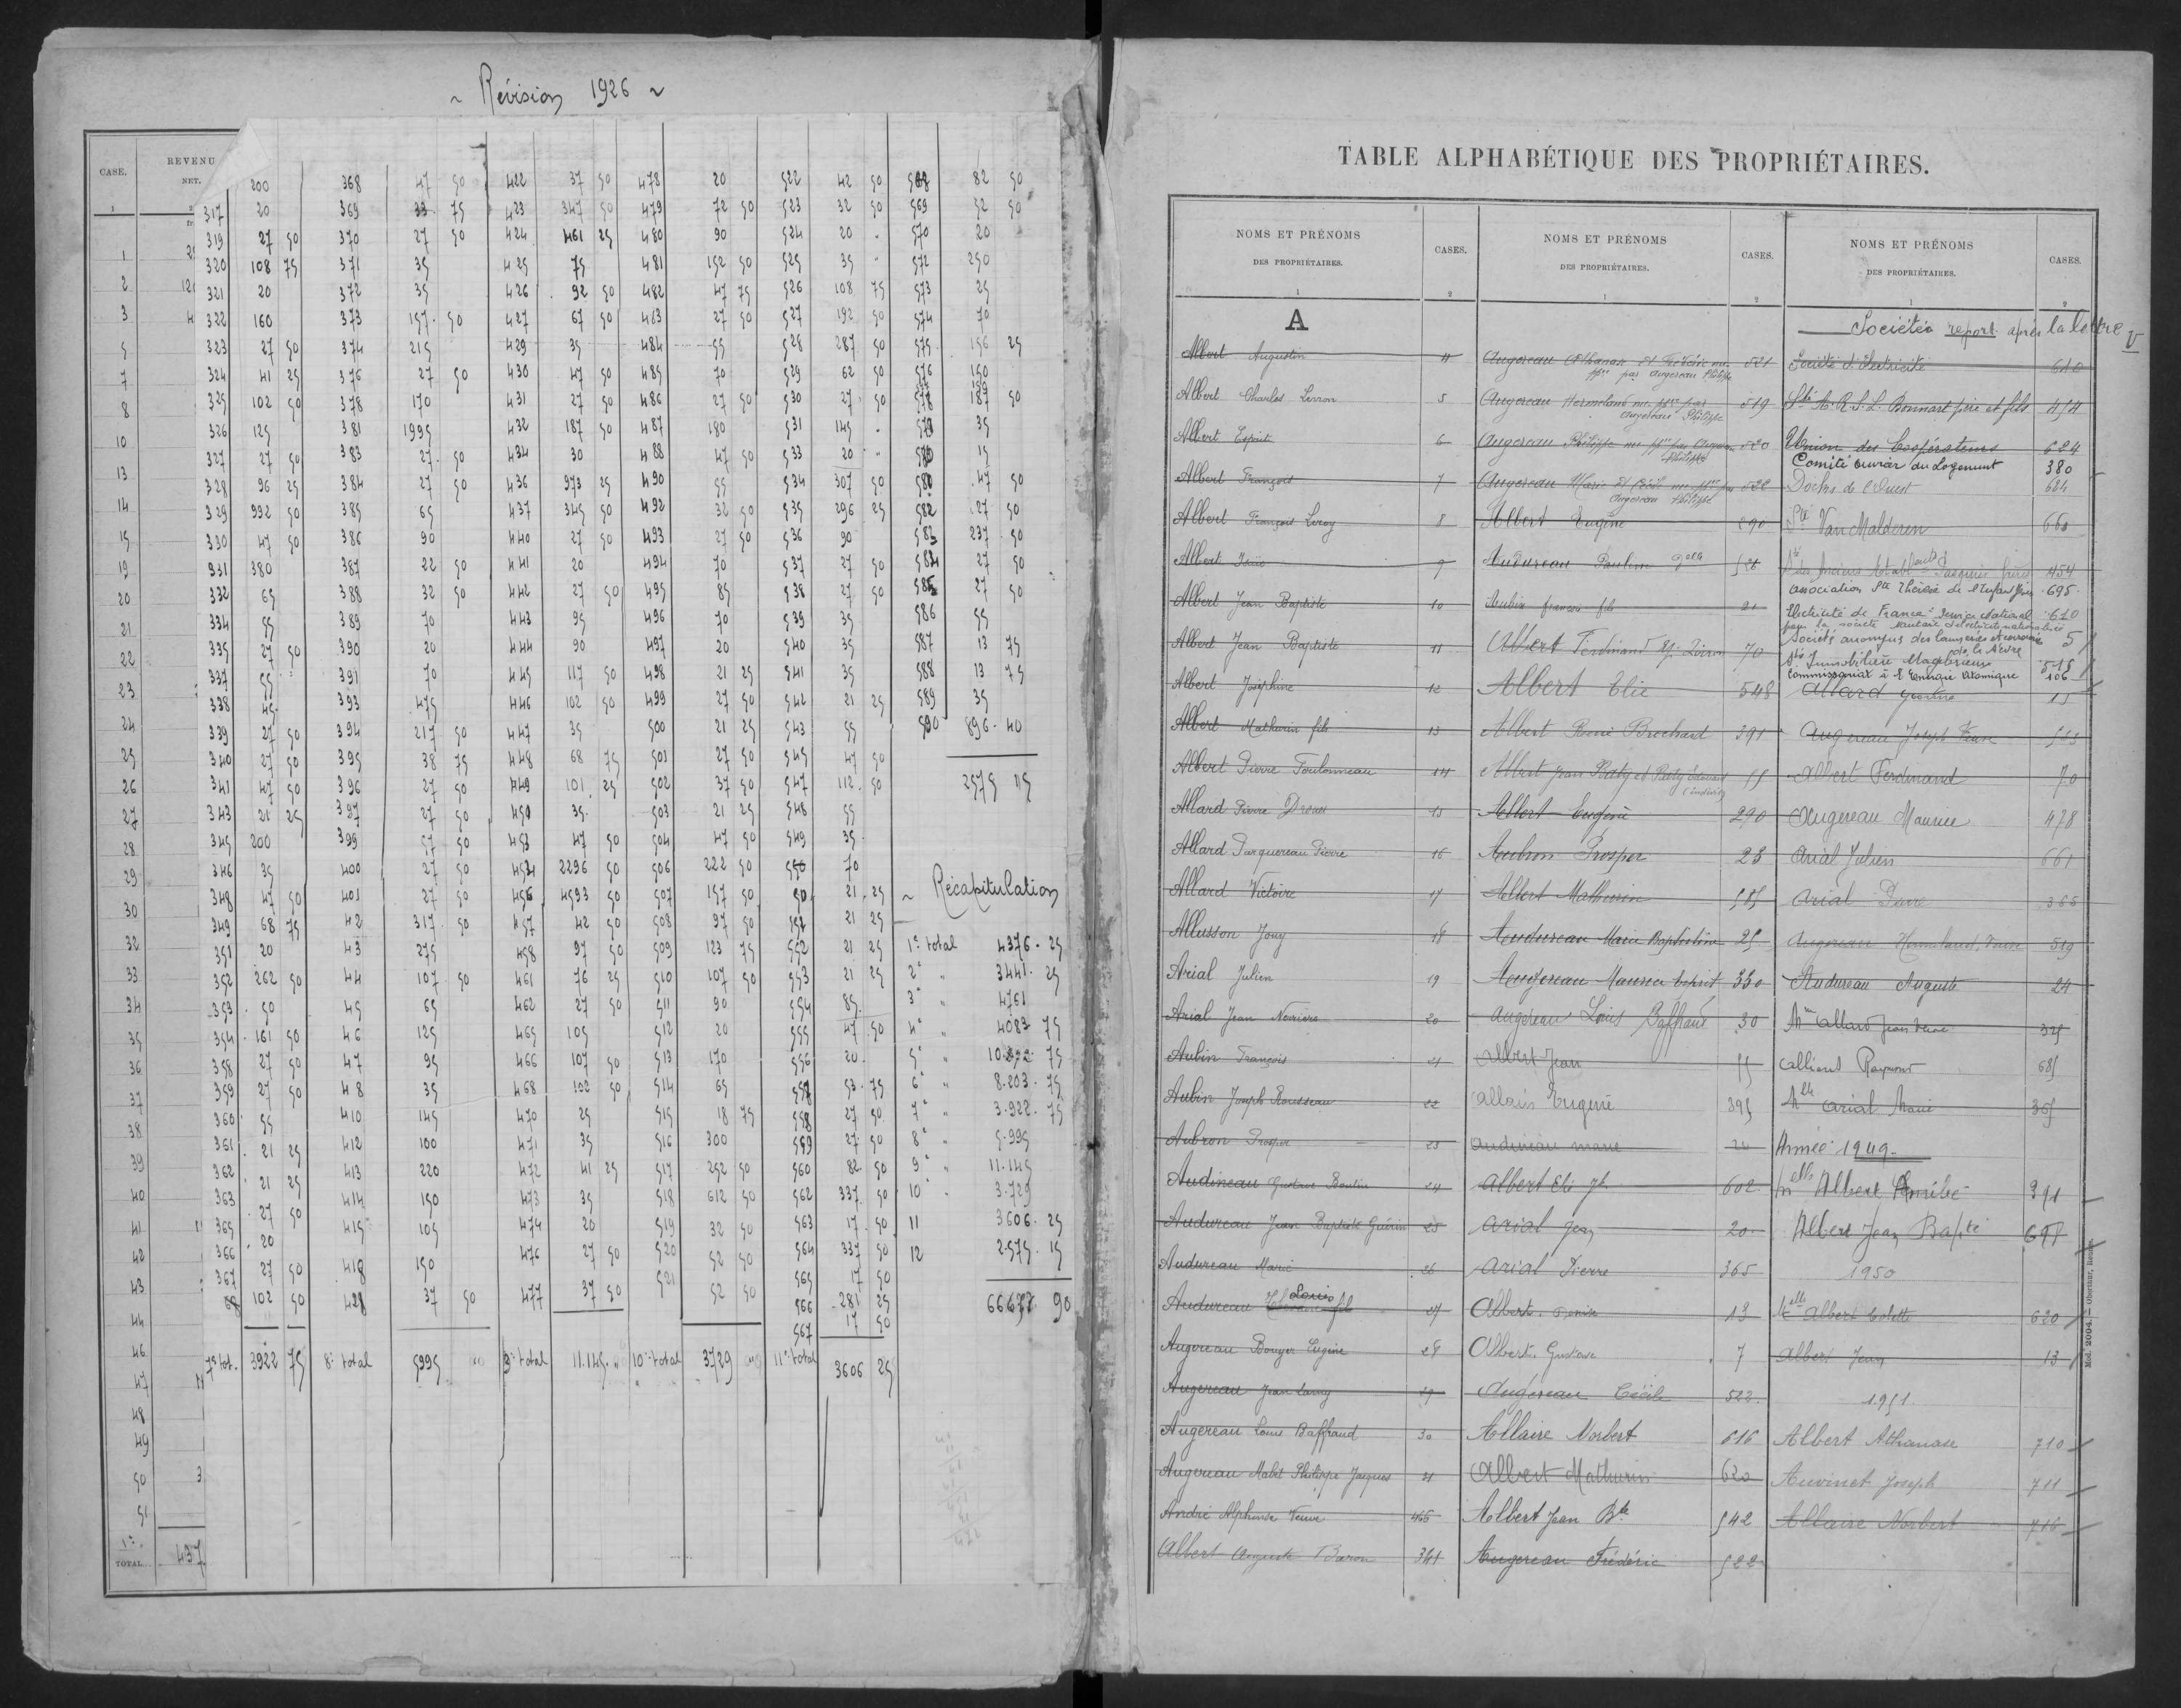 ~ Révision 1926 ~
CASE.
REVENU
NET.
200 368 47 50 422 37 50 478 20 522 42 50 568 82 50
317 20 369 33 75 423 347 50 479 72 50 523 32 50 569 52 50
1 319 27 50 370 27 50 424 461 25 480 90 524 20 570 20
320 108 75 371 35 425 75 481 152 50 525 35 572 250
2 321 20 372 35 426 92 50 482 47 75 526 108 75 573 25
3 322 160 373 157 50 427 67 50 483 27 50 527 192 50 574 70
5 323 27 50 374 215 429 35 484 55 528 287 50 575 156 25
7 324 41 25 376 27 50 430 47 50 485 70 529 62 50 576 150
8 325 102 50 378 170 431 27 50 486 27 50 530 27 50 578 187 50
10 326 125 381 1995 432 187 50 487 180 531 145 35
327 27 50 383 27 50 434 30 488 47 50 533 20 15
13 328 96 25 384 27 50 436 973 25 490 55 534 307 50 47 50
14 329 992 50 385 65 437 345 50 492 32 50 535 296 25 582 27 50
15 330 47 50 386 90 440 27 50 493 27 50 536 90 583 237 50
19 331 380 387 22 50 441 20 494 70 537 27 50 584 27 50
20 332 65 388 32 50 442 27 50 495 85 538 27 50 585 27 50
21 334 55 389 70 443 95 496 70 539 35 586 55
22 335 27 50 390 20 444 90 497 20 540 35 587 13 75
23 337 55 391 70 445 117 50 498 21 25 541 35 588 13 75
338 45 393 475 446 102 50 499 27 50 542 21 25 589 35
24 339 27 50 394 217 50 447 35 500 21 25 543 55 590 896 40
25 340 27 50 395 38 75 448 68 75 501 27 50 545 47 50
26 341 47 50 396 27 50 449 101 25 502 37 50 547 112 50 2575 15
27 343 21 25 397 27 50 450 35 503 21 25 548 55
28 345 200 399 57 50 453 47 50 504 47 50 549 35
29 346 35 400 27 50 454 2296 50 506 222 50 550 70
30 348 47 50 401 27 50 456 4593 50 507 157 50 21 25
~ Récapitulation
349 68 75 42 317 50 457 42 50 508 97 50 21 25
32 351 20 43 275 458 97 50 509 123 75 552 21 25 1er total 4376 25
33 352 262 50 44 107 50 461 76 25 510 107 50 553 21 25 2e " 3441 25
34 353 50 45 65 462 27 50 511 90 554 85 3e " 4761
35 354 161 50 46 125 465 105 512 20 555 47 50 4e " 4083 75
36 358 27 50 47 95 466 107 50 513 170 556 20 5e " 75
37 359 27 50 48 35 468 102 50 514 65 557 53 75 6e " 8.203 75
38 360 55 410 145 470 25 515 18 75 558 27 50 7e " 3.922 75
39 361 21 25 412 100 471 35 516 300 559 27 50 8e " 5.995
362 21 25 413 220 472 41 25 517 252 50 560 82 50 9e " 11.145
40 363 27 50 414 150 473 35 518 612 50 562 337 50 10 " 3.729
41 365 20 415 105 474 20 519 32 50 563 17 50 11 3606 25
42 366 27 50 418 150 476 27 50 520 52 50 564 337 50 12 2575 15
43 367 102 50 37 50 477 37 50 521 52 50 565 17 50
44 68 566 281 25 66677 90
567 17 50
46 7e tot. 3922 75 8e total 5995 9e total 11.145 10e total 3729 11e total 3606 25
47
48
49
50 3
51
1er
TOTAL... 437
TABLE ALPHABÉTIQUE DES PROPRIÉTAIRES.
NOMS ET PRÉNOMS
DES PROPRIÉTAIRES.
CASES.
NOMS ET PRÉNOMS
DES PROPRIÉTAIRES.
CASES.
NOMS ET PRÉNOMS
DES PROPRIÉTAIRES.
CASES.
1 2 1 2 1 2
A
Albert Augustin 4
Albert Charles Livron 5
Albert Esprit 6
Albert François 7
Albert François Leroy 8
Albert Isaïe 9
Albert Jean Baptiste 10
Albert Jean Baptiste 11
Albert Joséphine 12
Albert Mathurin fils 13
Albert Pierre Toulonneau 14
Allard Pierre Drouet 15
Allard Purquereau Pierre 16
Allard Victoire 17
Allusson Jouy 18
Arial Julien 19
Arial Jean Noirière 20
Aubin François 21
Aubin Joseph Rousseau 22
Aubron Prosper 23
Audineau Gustave Boutin 24
Audureau Jean Baptiste Guérin 25
Audureau Marie 26
Audureau Louis fils 27
Augereau Bouyer Eugène 28
Augereau Jean Lamy 29
Augereau Louis Baffraud 30
Augereau Mabit Philippe Jacques 31
André Alphonse Veuve 465
Albert Auguste Baron 341
Augereau Athanase et Frédéric nu-
pptre par Augereau Philippe 521
Augereau Hermeland nu-pptre par
Augereau Philippe 519
Augereau Philippe nu pptre par Augereau
Philippe 520
Augereau Marie et Cécile nu pptre par
Augereau Philippe 522
Albert Eugène 290
Audureau Pauline Delle 526
Aubin François fils 21
Albert Ferdinand Ep. Poiron 70
Albert Elie 548
Albert René Brochard 391
Albert Jean Baty et Baty Edouard 55
(indivis)
Albert Eugène 290
Aubron Prosper 23
Albert Mathurin 585
Audureau Marie Baptistine 25
Augereau Maurice Esprit 330
Augereau Louis Baffraud 30
Albert Jean 55
Allais Eugène 395
Audineau Marie 24
Albert Elie Jh 602
Arial Jean 20
Arial Pierre 365
Albert. Denise 13
Albert. Gustave 7
Augereau Cécile 522
Allaire Norbert 616
Albert Mathurin 620
Albert Jean Bte 542
Augereau Frédéric 522
Sociétés report après la lettre V
Société d'électricité 610
Sté A.R.S.L. Bonnart père et fils 454
Union des Coopérateurs 624
Comité ouvrier du Logement 380
Docks de l'Ouest 684
Sté Van Malderen 660
Sté des Anciens Etablissts Pasquier frères 454
Association Ste Thérèse de l'Enfant Jésus 695
Electricité de France Service National 610
Société anonyme des tanneries et corroieries
de la Nièvre 5
Sté Immobilière 515
Commissariat à l'Energie Atomique 106
Allard 15
Augereau Joseph Veuve 525
Albert Ferdinand 70
Augereau Maurice 478
Arial Julien 661
Arial Pierre 365
Augereau Hermeland Veuve 519
Audureau Auguste 24
Mme Allard Jean Veuve 325
Alliont Raymond 685
Mlle Arial Marie 365
Année 1949
Melle Albert Aimée 391
Albert Jean Bapte
1950
Melle Albert Colette 620
Albert Jean 13
1951
Albert Athanase 710
Auvinet Joseph 711
Allaire Norbert 716
Mod. 2004. — Oberthur, Rennes.